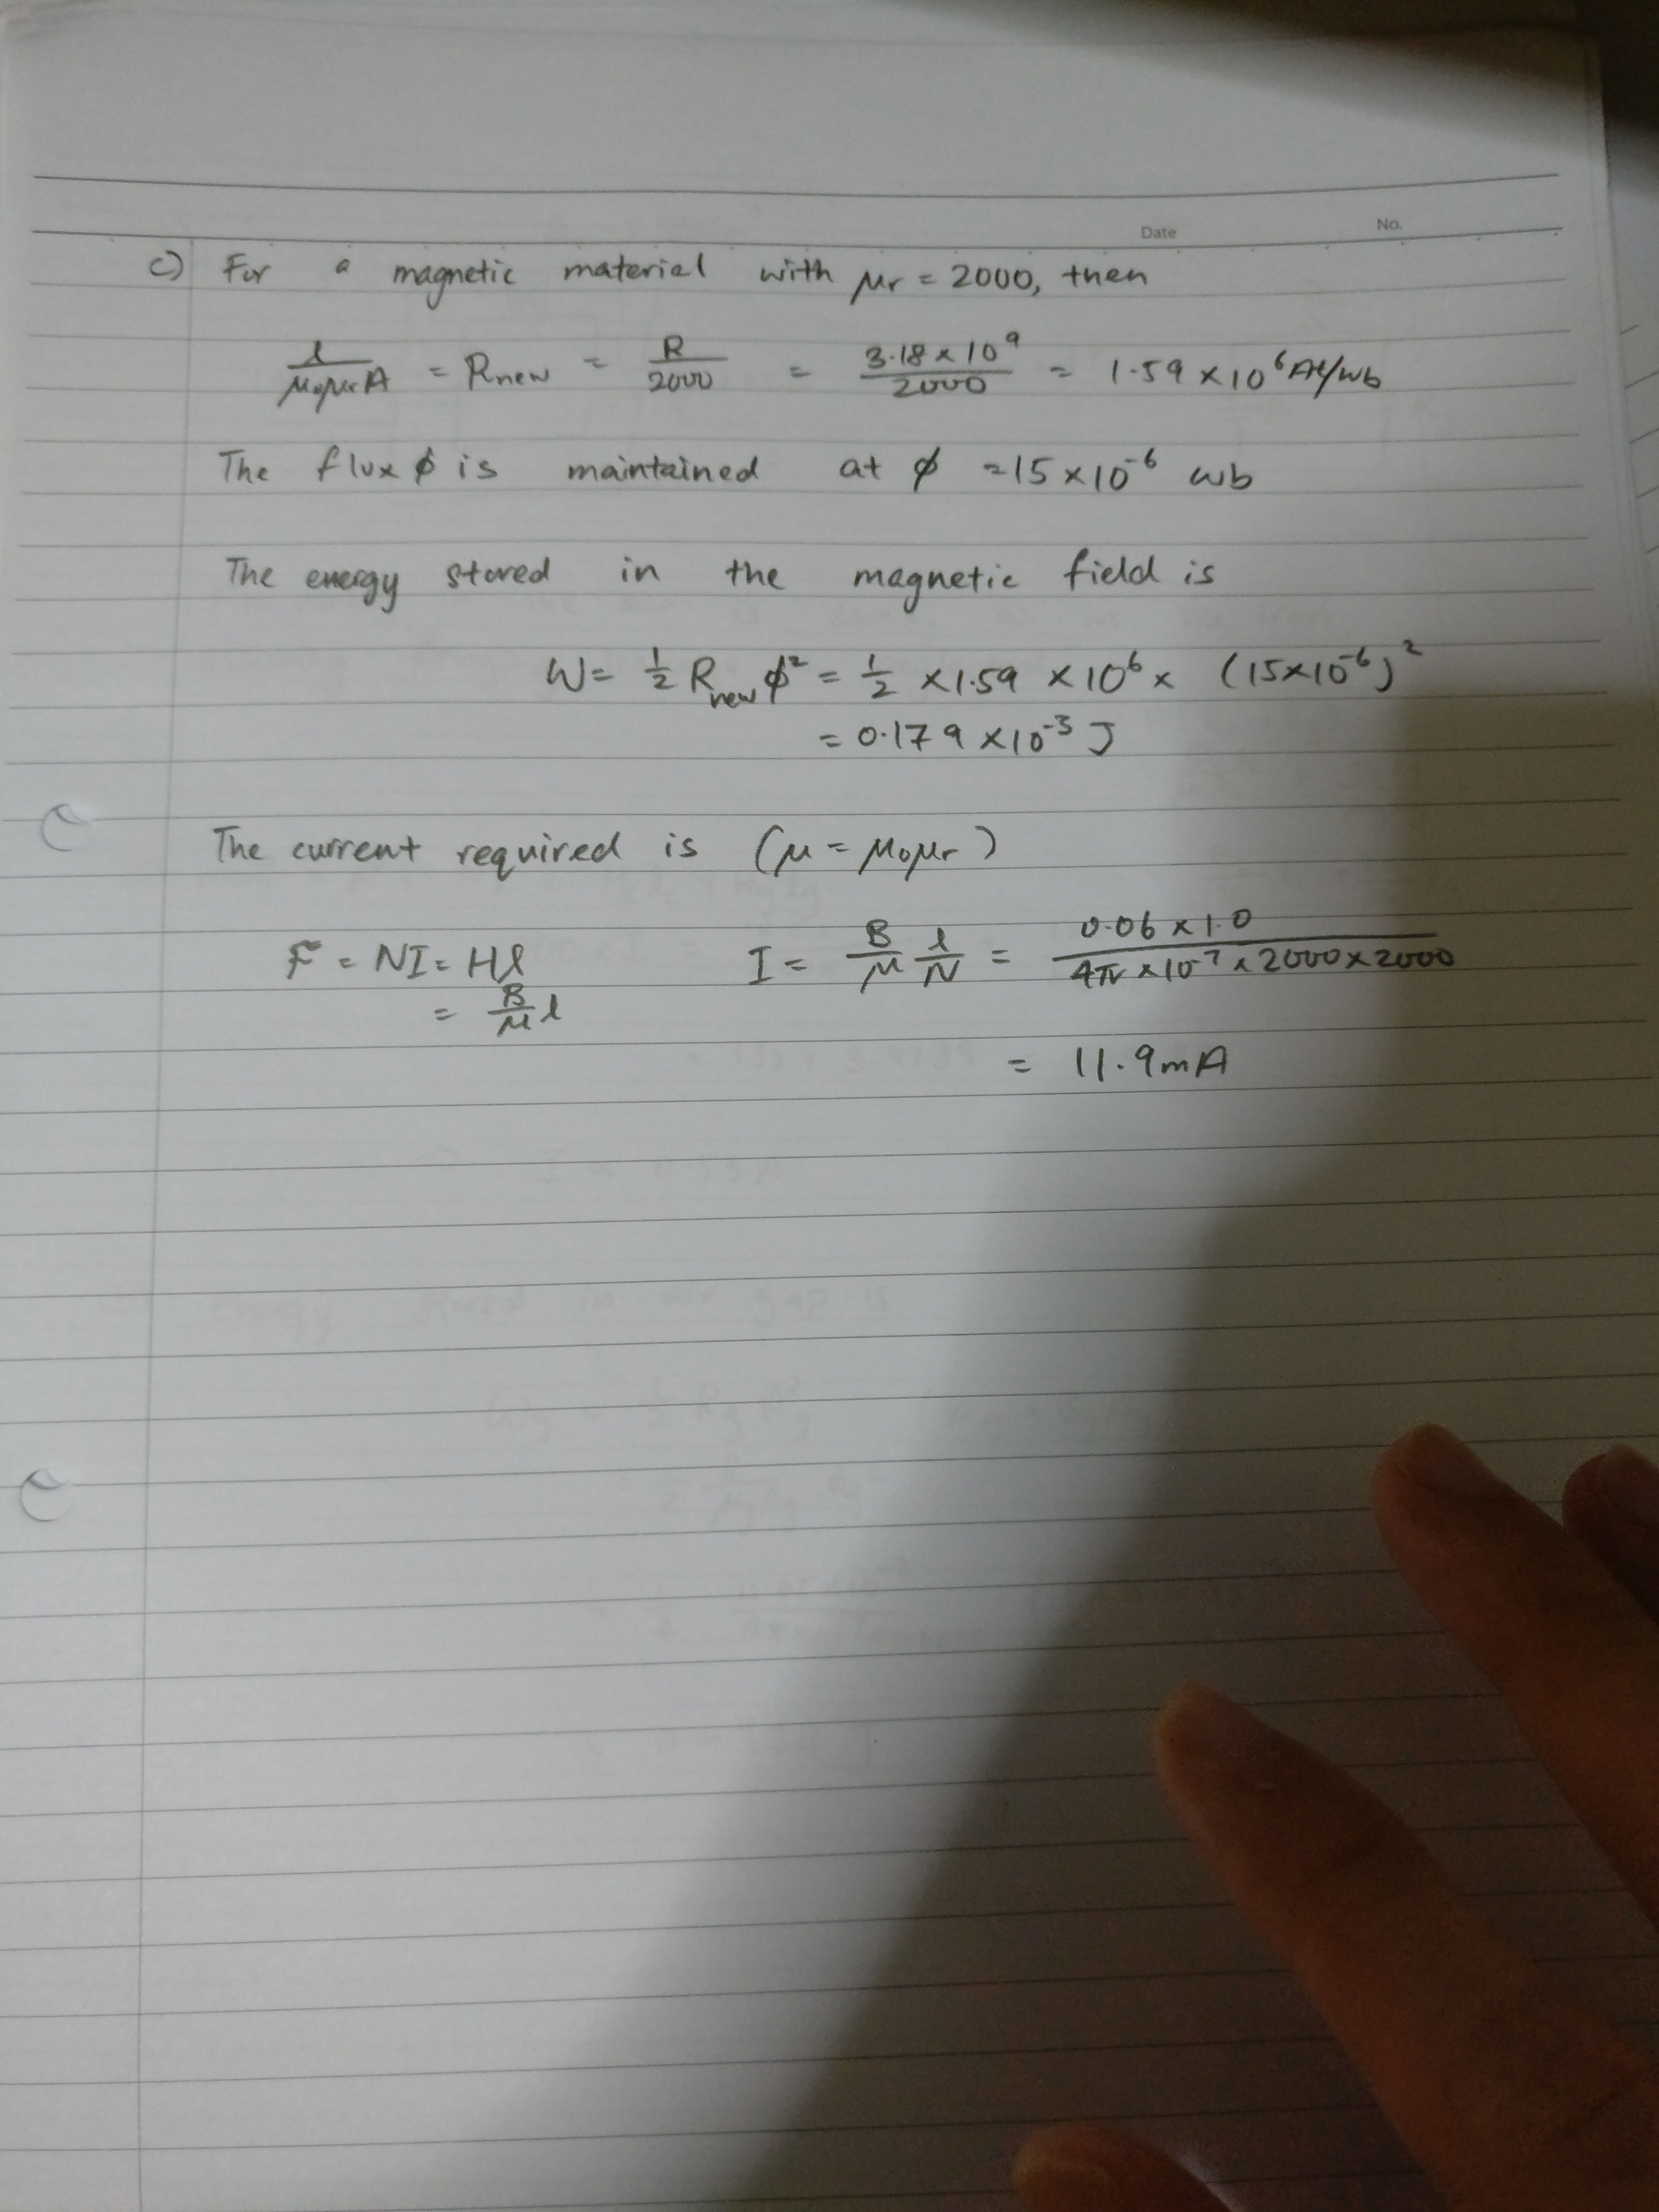 Date No.
c) For a magnetic material with μr = 2000, then
l/μ0μrA = Rnew = R/2000 = 3.18 × 10^9/2000 = 1.59 × 10^6 At/wb
The flux ϕ is maintained at ϕ = 15 × 10^-6 wb
The energy stored in the magnetic field is
W = 1/2 Rnew ϕ^2 = 1/2 × 1.59 × 10^6 × (15×10^-6)^2
= 0.179 × 10^-3 J
The current required is (μ = μ0μr)
F = NI = Hl I = B/μ l/N = 0.06 × 1.0/4π × 10^-7 × 2000 × 2000
= B/μ l
= 11.9mA